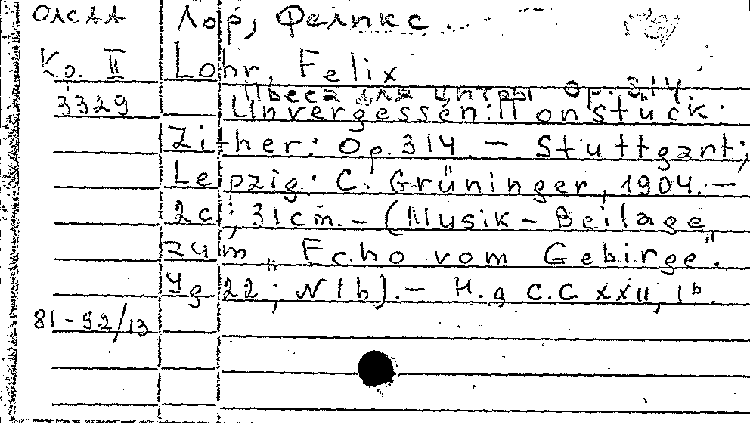 ОЛСАА Лор, Феликс
Ko. II Lohr, Felix
Пьеса для цитры Op. 314.
3329 Unvergessen: Tonstück.
Zither: Op. 314 - Stuttgart;
Leipzig: C. Grüninger, 1904. -
2c; 31cm. - (Musik-Beilage
zum „Echo vom Gebirge".
Yg 22; N1b). - H.д C.C XXII, 1b.
81-92/13